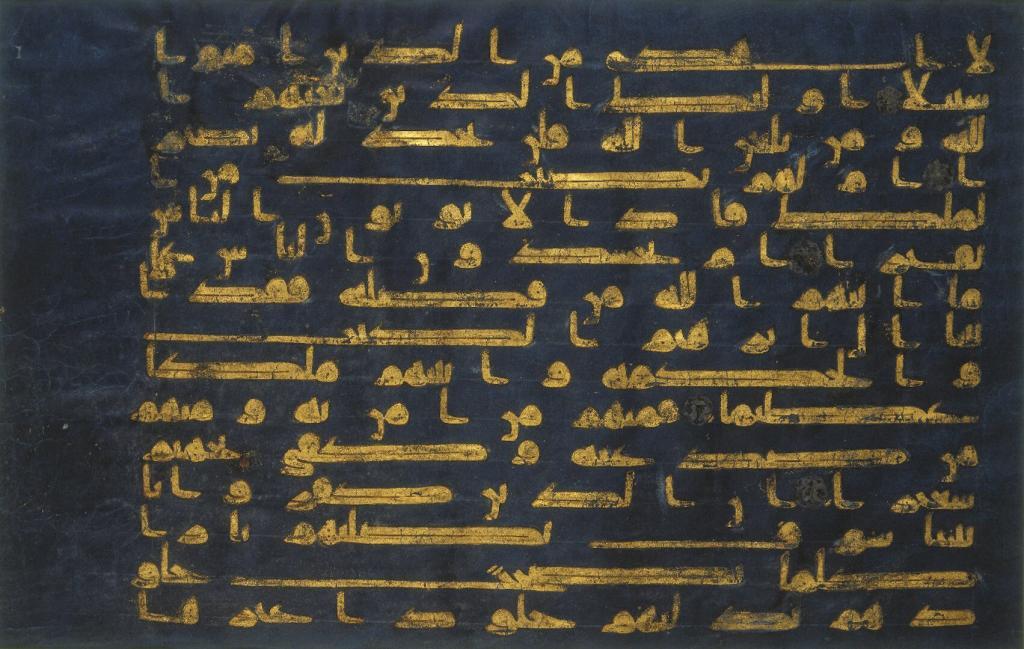 لا اهدى من الذين امنوا
سبيلا اولئك الذين لعنهم ا
لله ومن يلعن الله فلن تجد له نصير
ا ام لهم نصيب من ا
لملك فاذا لا يوتون الناس
نقيرا ام يحسدون الناس على
ما اتيهم الله من فضله فقد ا
تينا ال ابرهيم الكتب
و الحكمة واتينهم ملكا
عظيما فمنهم من امن به ومنهم
من صد عنه وكفى بجهنم
سعيرا ان الذين كفروا بايا
تنا سوف نصليهم نارا
كلما نضجت جلو
دهم بدلنهم جلودا غيرها